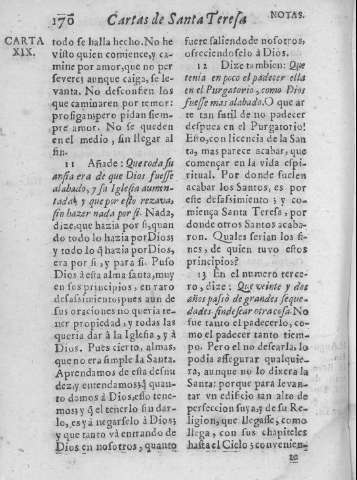 170 Cartas de Santa Teresa NOTAS.
CARTA XIX.
todo se halla hecho. No he
visto quien comience, y ca
mine por amor, que no per
severe; aunque caiga, se le-
vanta. No desconfien los
que caminaren por temor:
prosigan: pero pidan siem-
pre amor. No se queden
en el medio, sin llegar al
fin.
11 Añade: Que toda su
ansia era de que Dios fuesse
alabado, y su Iglesia aumen-
tada; y que por esto rezava,
sin hazer nada por si. Nada,
dize, que hazia por si, quan
do todo lo hazia por Dios;
y todo lo q̃ hazia por Dios,
era por si, y para si. Puso
Dios à esta alma santa, muy
en sus principios, en raro
desassimiento; pues aun de
sus oraciones no queria te-
ner propiedad, y todas las
queria dar à la Iglesia, y à
Dios. Pues cierto, almas,
que no era simple la Santa.
Aprendamos de esta desnu
dez, y entendamos, q̃ quan
to damos à Dios, esso tene-
mos; y q̃ el tenerlo sin dar-
lo, es yà negarselo à Dios;
y que tanto và entrando de
Dios en nosotros, quanto
fuere saliendo de nosotros,
ofreciendoselo à Dios.
12 Dize tambien: Que
tenia en poco el padecer ella
en el Purgatorio, como Dios
fuesse mas alabado. O que ar
te tan sutil de no padecer
despues en el Purgatorio!
Esso, con licencia de la San
ta, mas parece acabar, que
començar en la vida espi-
ritual. Por donde suelen
acabar los Santos, es por
este desassimiento; y co-
miença Santa Teresa, por
donde otros Santos acaba-
ron. Quales serian los fi-
nes, de quien tuvo estos
principios?
13 En el numero terce-
ro, dize: Que veinte y dos
años passò de grandes seque-
dades sin desear otra cosa. No
fue tanto el padecerlo, co-
mo el padecer tanto tiem-
po. Pero el no desearla, lo
podia assegurar qualquie-
ra, aunque no lo dixera la
Santa: porque para levan-
tar vn edificio tan alto de
perfeccion suya, y de su Re-
ligion, que llegasse, como
llega, con sus chapiteles
hasta el Cielo; convenien-
te